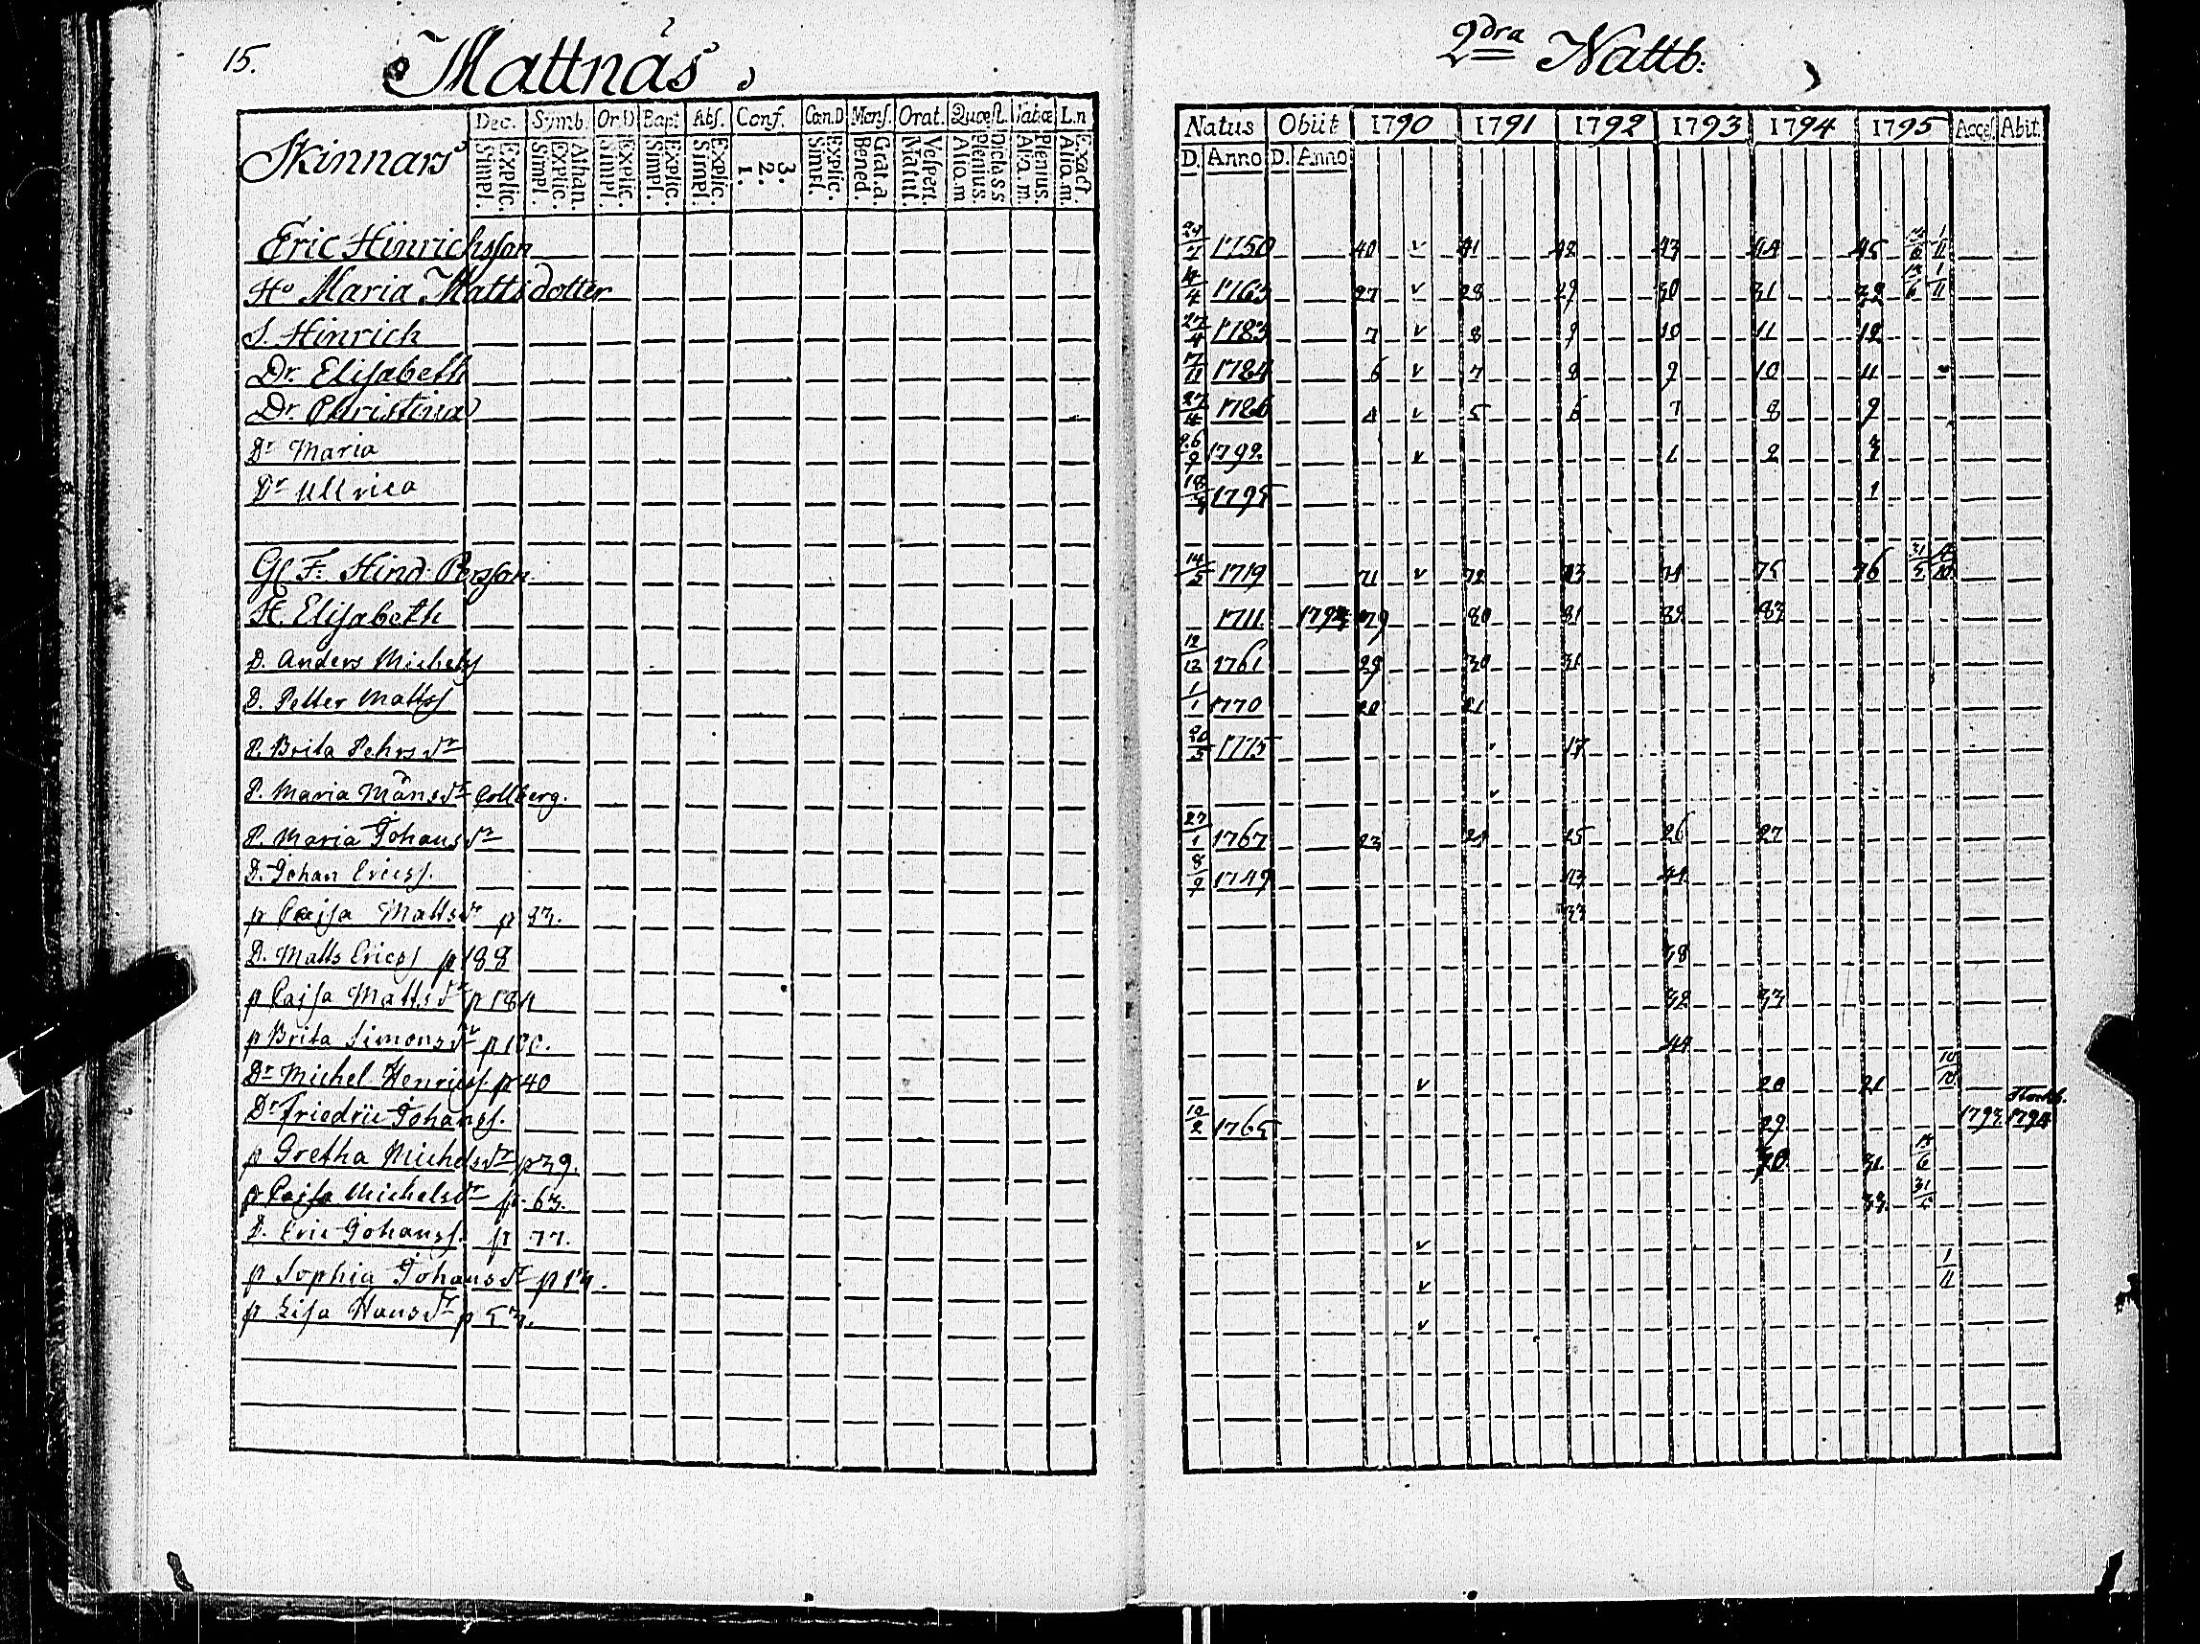 15.
Mattnäs,
2dra Nattb:
Skinnars
Dec. Symb. Or.D Bapt Abs. Conf. Can.D Mens. Orat. Quæst. L.n
Simpl. Explic. Simpl. Explic. Athan. Simpl. Explic. Simpl. Explic. Simpl. Explic. 1. 2. 3. Simpl. Explic. Bened. Grat.a. Matut. Vespert. Aliq.m Plenius. Aliq.m Plenius. Aliq.m. Exact.
Natus Obiit 1790 1791 1792 1793 1794 1795 Acces. Abit.
D. Anno D. Anno
Eric Hinrichsson 1750 40 v 41 42 43 44 45
Ho Maria Mattsdotter 1763 27 v 28 29 30 31 32
S. Hinrich 27/4 1783 7 v 8 9 10 11 12
Dr. Elisabeth 17/11 1784 6 v 7 8 9 10 11
Dr. Christina 1786 4 v 5 6 7 8 9
Dr Maria 26/9 1792 v 1 2 3
Dr Ullrica 1795 1
Gl F: Hind: Persson 14/5 1719 71 v 72 73 74 75 76
H. Elisabeth 1711 79 80 81 82 83
D. Anders Michelss 12/12 1761 29 30 31
D. Petter Mattss 1/1 1770 20 21
P. Brita Pehrsdr 20/5 1775 17
P. Maria Månsdr Collberg. v
P. Maria Johansdr 27/1 1767 23 24 25 26 27
D. Johan Ericss. 8/9 1749 43 44
p Caisa Mattsdr p 83. 33
D. Matts Ericss p 188 38
p Caisa Mattsdr p 184 32 33
p Brita Simonsdr p 44
Dr Michel Henricss. p 40 v 20 21 10/10
Dr Friedric Johanss. 1765 29 1793 Stockh. 1794
p Gretha Michelsdr p 39. 30 31
p Caisa Michelsdr p. 63. 33
D. Eric Johanss. p 77. v
p Sophia Johansdr p v 1/11
p Lisa Hansdr p 53. v